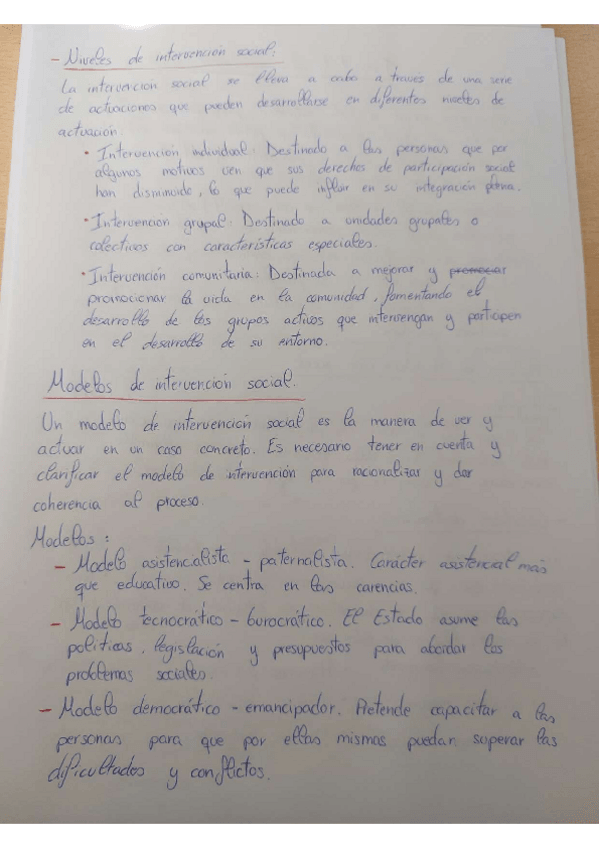 - Niveles de intervención social:
La intervención social se lleva a cabo a traves de una serie
de actuaciones que pueden desarrollarse en diferentes niveles de
actuación:
• Intervención individual: Destinado a las personas que por
algunos motivos ven que sus derechos de participación social
han disminuido, lo que puede influir en su integración plena.
• Intervención grupal: Destinado a unidades grupales o
colectivos con características especiales.
• Intervención comunitaria: Destinada a mejorar y promocar
promocionar la vida en la comunidad, fomentando el
desarrollo de los grupos activos que intervengan y participen
en el desarrollo de su entorno.
Modelos de intervención social.
Un modelo de intervención social es la manera de ver y
actuar en un caso concreto. Es necesario tener en cuenta y
clarificar el modelo de intervención para racionalizar y dar
coherencia al proceso.
Modelos:
- Modelo asistencialista - paternalista. Carácter asistencial más
que educativo. Se centra en las carencias.
- Modelo tecnocrático - burocrático. El Estado asume las
políticas, legislación y presupuestos para abordar los
problemas sociales.
- Modelo democrático - emancipador. Pretende capacitar a las
personas para que por ellas mismas puedan superar las
dificultades y conflictos.